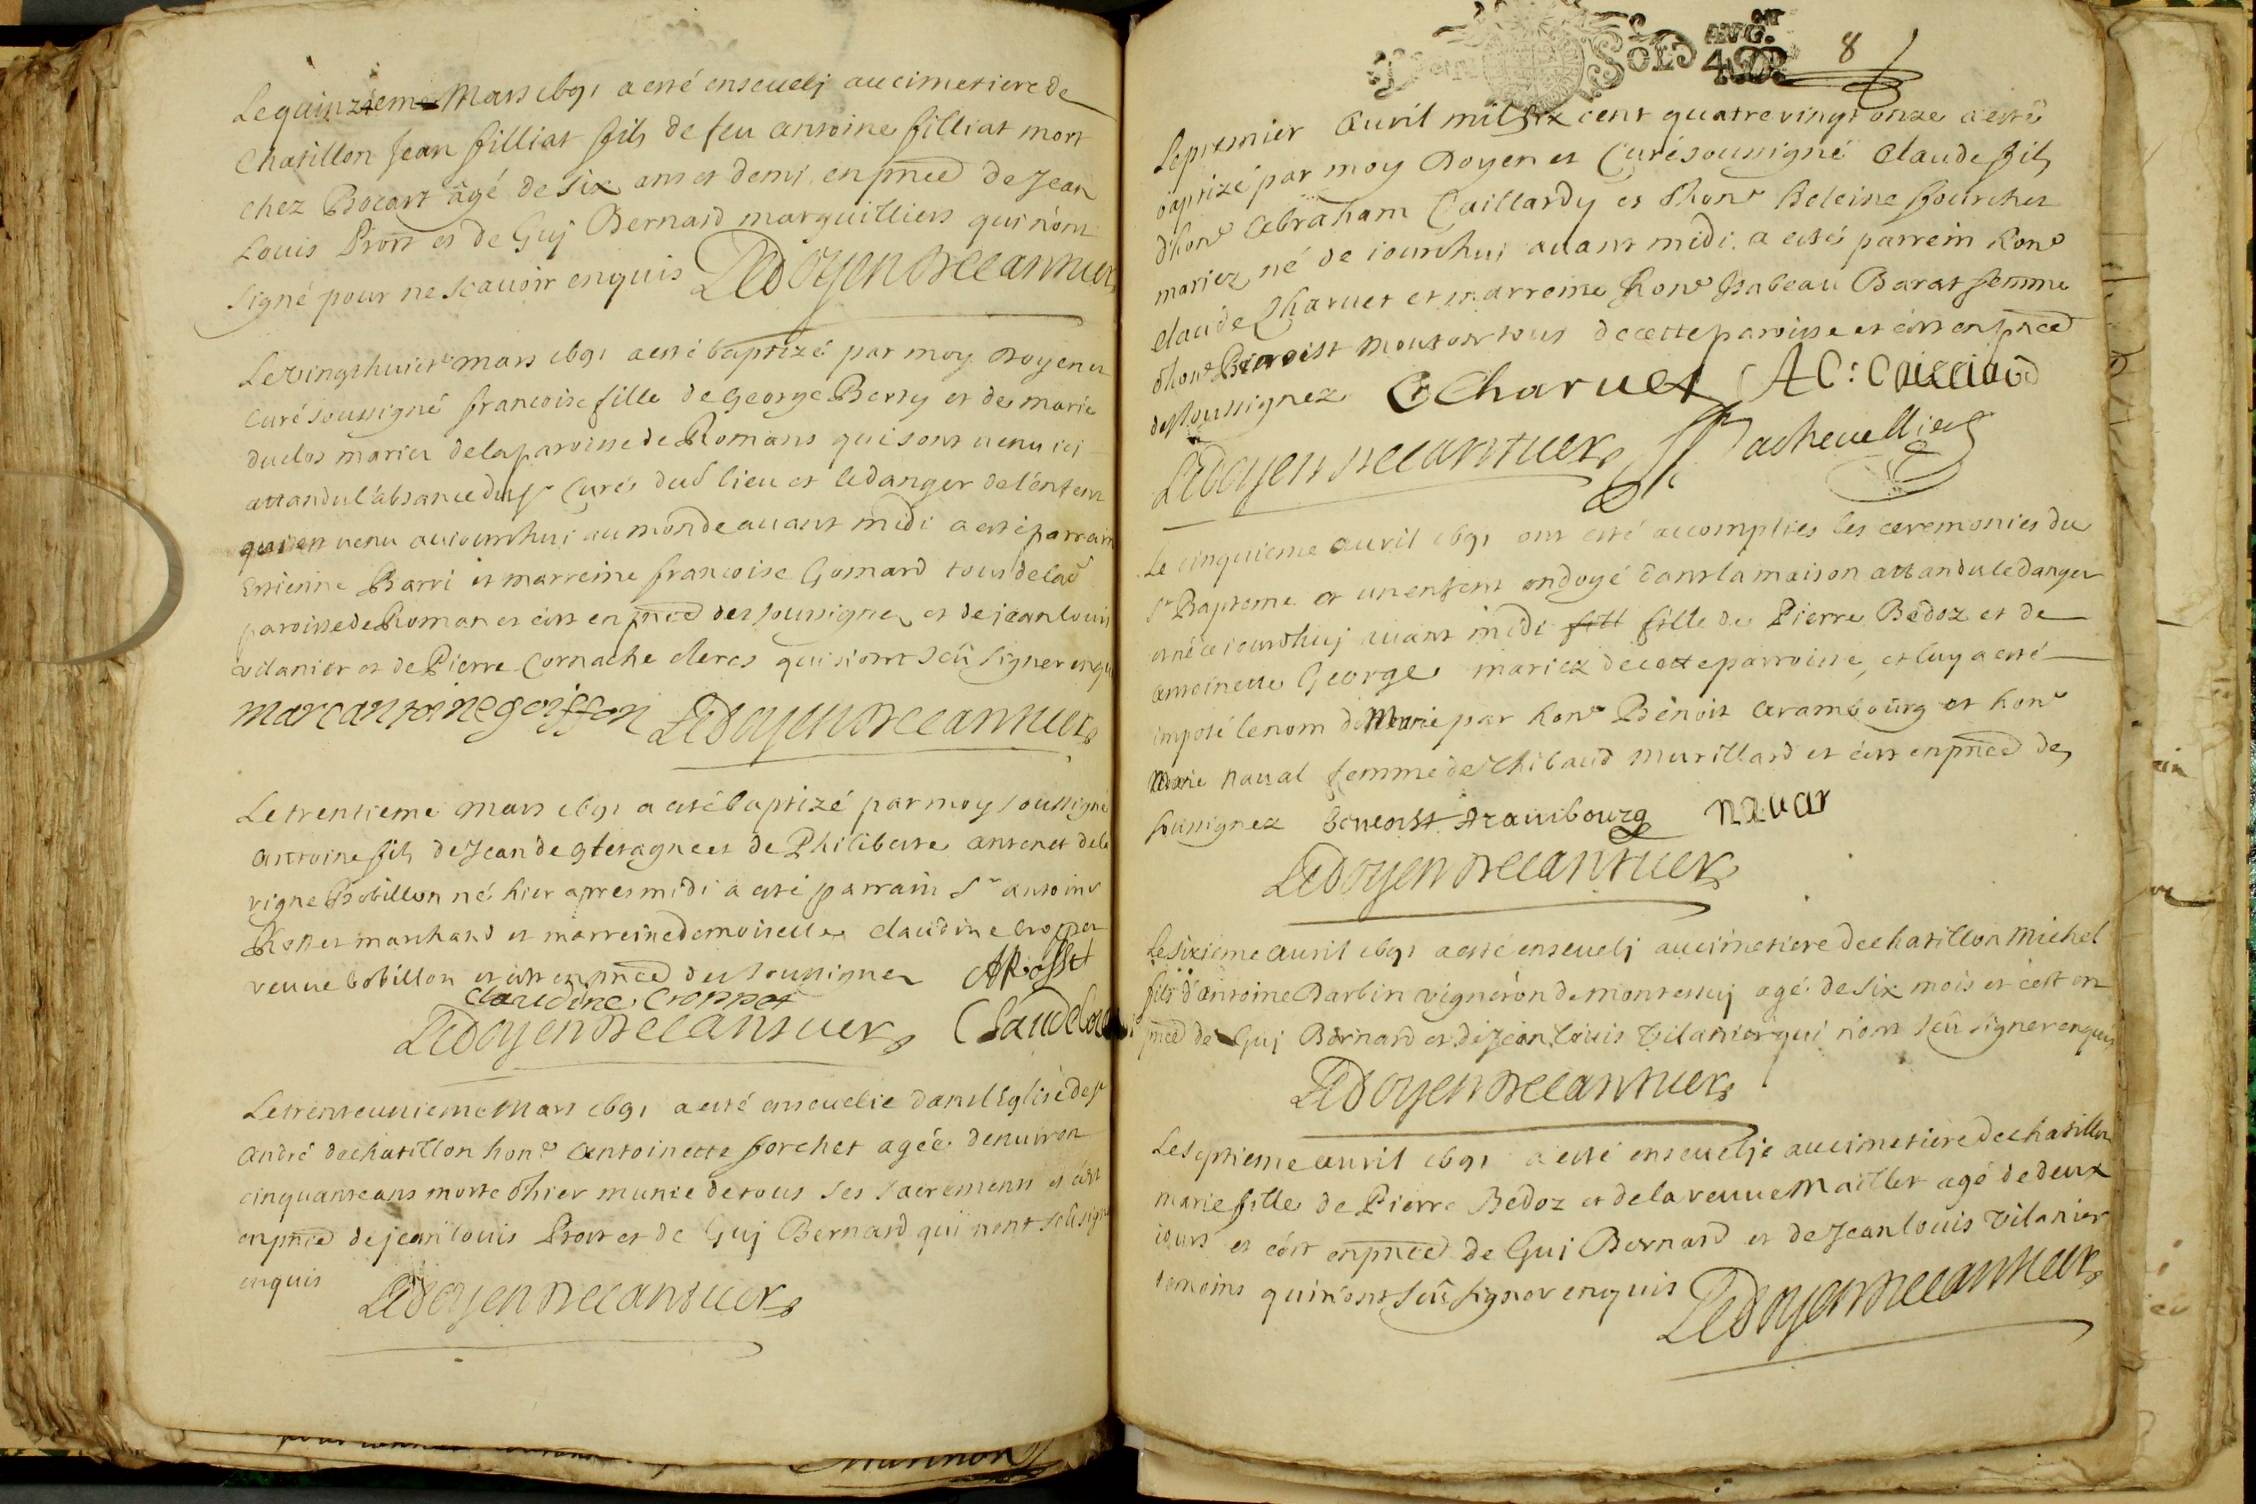 Le quinzieme Mars 1691 a esté ensevelj au cimetiere de
Chatillon Jean filliat fils de feu antoine filliat mort
chez Bocart âgé de six ans et demi en pnce de Jean
Louis Prost et de Guj Bernard marguilliers qui n'ont
signé pour ne scavoir enquis Ledoyen
Le vingthuict.e mars 1691 a esté baptizé par moy Doyen et
Curé soussigné francoise fille de George Berry et de marie
duclos mariez de la paroisse de Romans qui sont venu ici
attandu l'absance du sr Curé dud lieu et le danger de l'enfent
qui est venu aujourdhui au monde avant midi a esté parrain
Estienne Barri et marreine francoise Gomard tous de lad
paroisse de Romans et c'est en pnce des soussignez et de jean louis
vilanier et de Pierre Cornache clercs qui n'ont sçû signer enquis
marcantoine goiffon Ledoyen
Le trentieme Mars 1691 a esté baptizé par moy soussigné
antoine fils de Jean de et de Philiberte antenet de la
vigne Bobillon né hier apres midi a esté parrain Sr antoine
Rosset marchand et marreine demoiselle claudine Croppet
veuve bobillon et c'est en pnce des soussignez ARosset
claudine croppet
Ledoyen Claude
Le trenteunieme Mars 1691 a esté ensevelie dans l'Eglise de st
André de chatillon hon.e antoinette forchet agée denviron
cinquante ans morte d'hier munie de tous ses sacremens et c'est
en pnce de jean louis Prost et de Guj Bernard qui nont sçû signé
enquis Ledoyen
SOLS 4 D. 8
Le premier Avril mil six cent quatre vingt onze a esté
baptizé par moy Doyen et Curé soussigné Claude fils
d'hon.e Abraham Caillardy et d'hon.e heleine fourchet
mariez né de iourdhui avant midi a esté parrein hon.e
claude Charvet et marreine hon.e Isabeau Barat femme
d'hon.e Benoist Mouton tous de cette paroisse et c'est en pnce
des soussignez C Charvet AC:
Ledoyen Pachevellier
Le cinquieme avril 1691 ont esté accomplies les ceremonies du
st Bapteme et un enfent ondoyé dans la maison attandu le danger
et né ce iourdhuj avant midi fill fille de Pierre Bedoz et de
antoinette George mariez de cette parroisse, et luy a esté
imposé le nom de Marie par hon.e Benoit arambourg et hon.e
Marie naval femme de Thibaud Murillard et c'est en pnce des
soussignez benoist Arambourg navar
Ledoyen
Le sixieme avril 1691 a esté ensevelj au cimetiere de chatillon Michel
fils d'antoine Darbin vigneron de Montessuj agé de six mois et c'est en
pnce de Guj Bernard et de Jean Louis Vilanier qui n'ont sçû signer enquis
Ledoyen
Le septieme avril 1691 a esté ensevelje au cimetiere de chatillon
marie fille de Pierre Bedoz et de la veuve Maillet agé de deux
iours et c'est en pnce de Gui Bernard et de Jean louis Vilanier
temoins qui n'ont sçû signer enquis Ledoyen